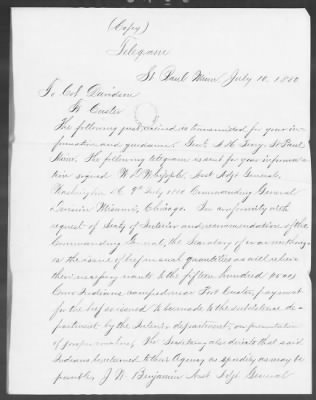 (Copy)
Telegram
St Paul Minn July 10, 1880
To Col. Davidson
Ft Custer
The following just received is transmitted for your in-
formation and guidance. Genl. A H Terry, St Paul
Minn. The following telegram is sent for your informa-
tion signed W D Whipple, Asst Adjt General,
Washington D C 9th July 1880 Commanding General
Division Missouri, Chicago. In conformity with
request of Secty of Interior and recommendation of the
Commanding General, the Secretary of war authorizes
the issue of beef in such quantities as will relieve
their necessary wants to the fifteen hundred
Crow Indians camped near Fort Custer, payment
for the beef so issued to be made to the subsistence de-
partment by the Interior department, on presentation
of proper vouchers. The Secretary also directs that said
Indians be returned to their Agency as speedily as may be
possible, J W Benjamin Asst Adjt General